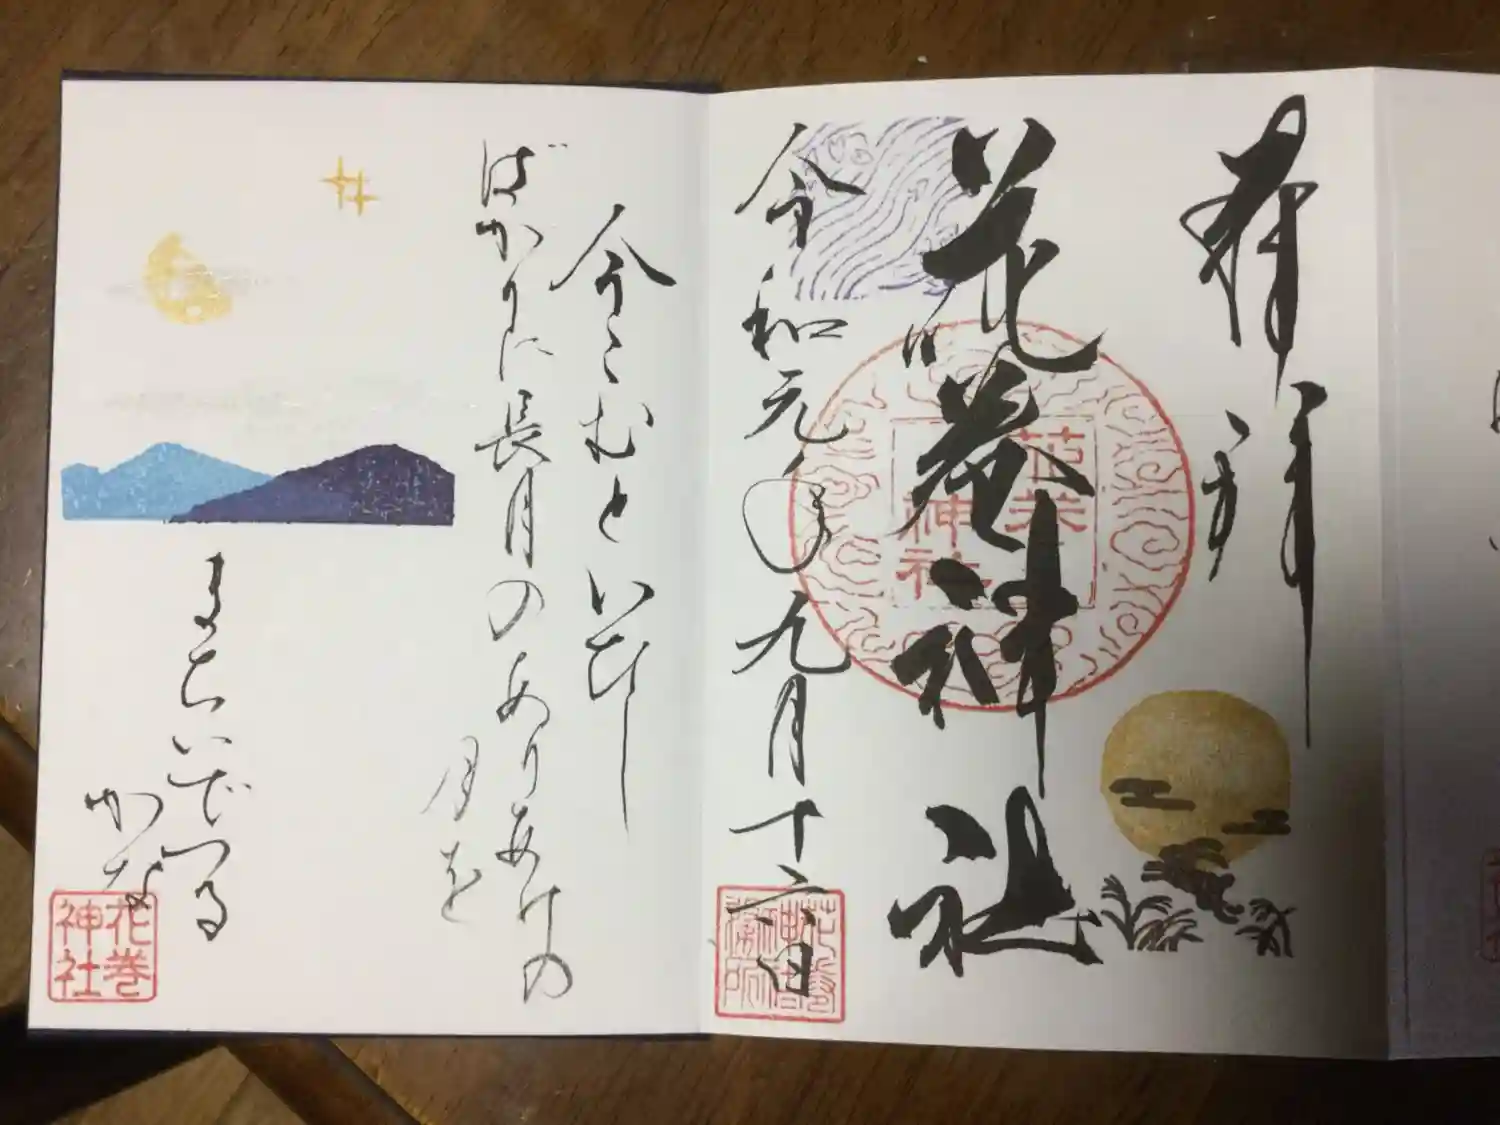 奉拝
花巻神社
花巻
神社
令和元年九月十六日
花巻
神社
務所
今こむといひし
ばかりに長月のありあけの
月を
まちいでつる
かな
花巻
神社